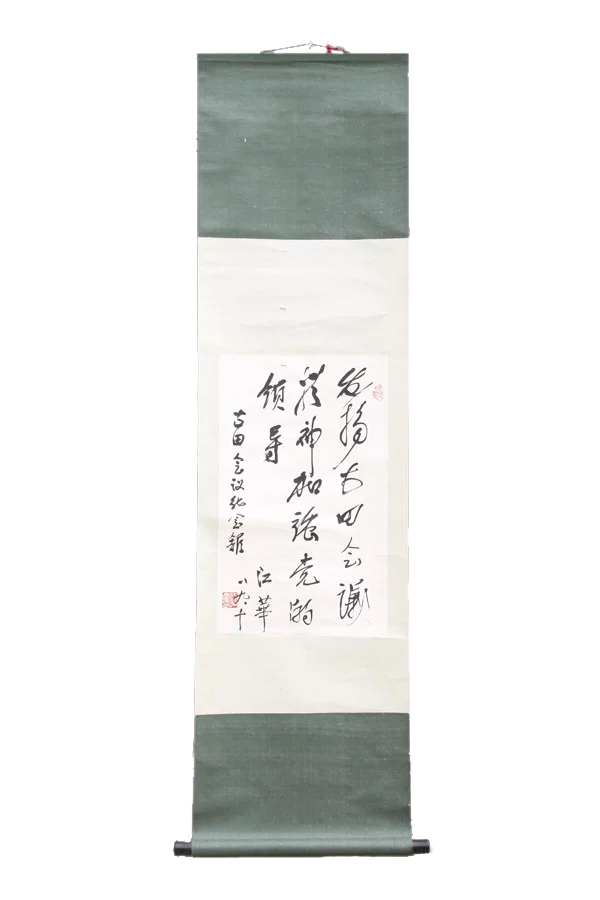 发扬古田会議
精神加强党的
领导
古田会议纪念馆
江華
八九.十